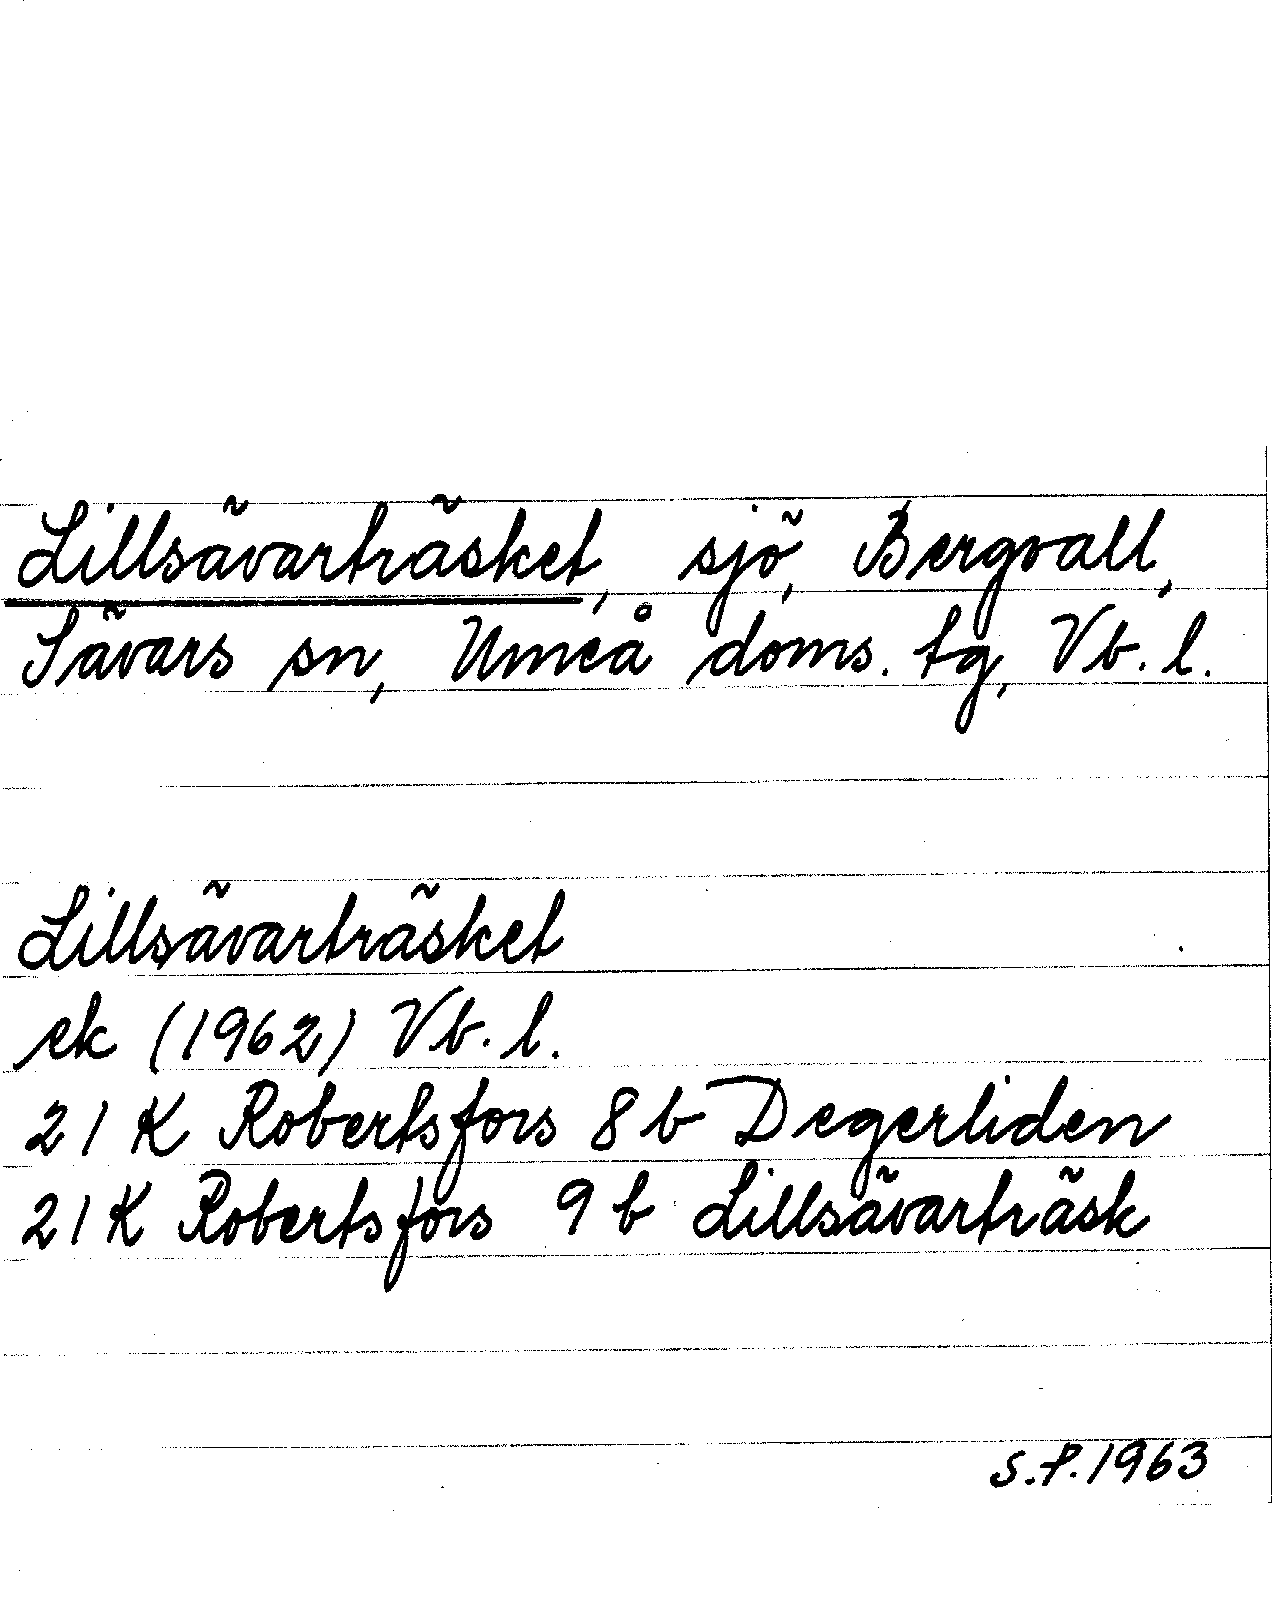 Lillsävarträsket, sjö, Bergvall,
Sävars sn, Umeå doms. tg, Vb. l.
Lillsävarträsket
ek (1962) Vb. l.
21 K Robertsfors 8 b Degerliden
21 K Robertsfors 9 b Lillsävarträsk
S.P. 1963